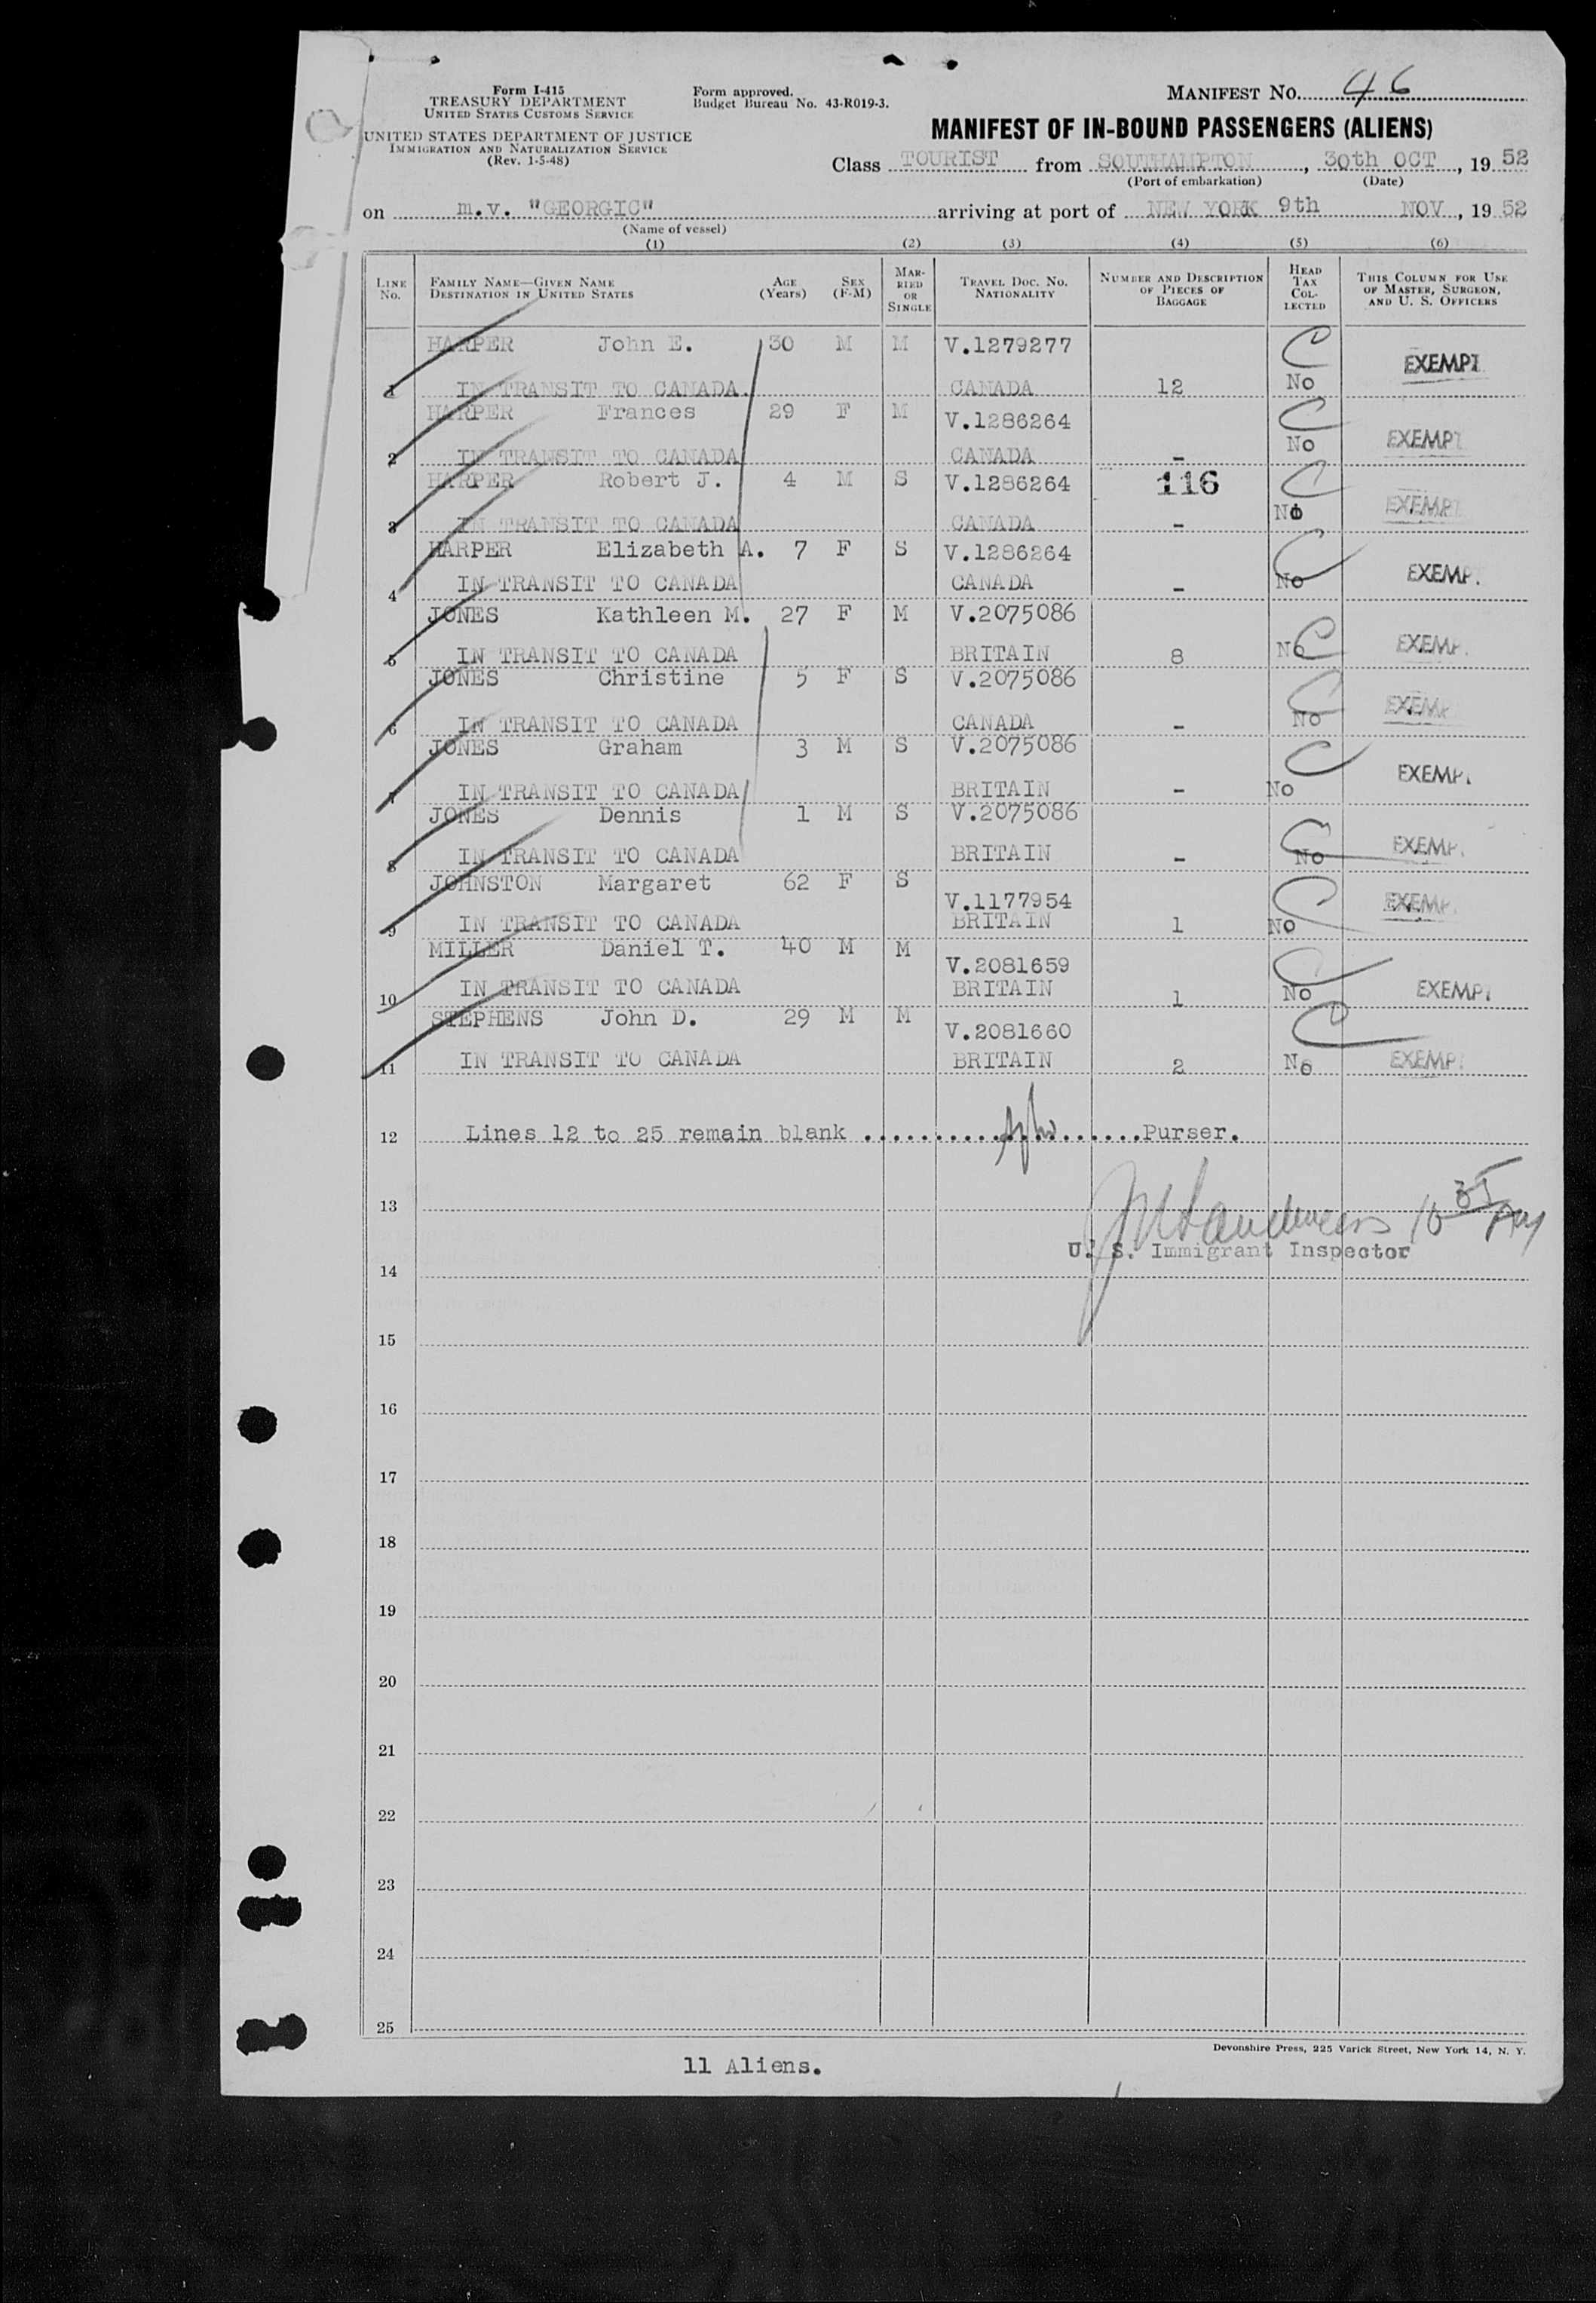 Form I-415
TREASURY DEPARTMENT
UNITED STATES CUSTOMS SERVICE
UNITED STATES DEPARTMENT OF JUSTICE
IMMIGRATION AND NATURALIZATION SERVICE
(Rev. 1-5-48)
Form approved.
Budget Bureau No. 43-R019-3.
MANIFEST NO. 46
MANIFEST OF IN-BOUND PASSENGERS (ALIENS)
Class TOURIST from SOUTHAMPTON, 30th OCT, 19 52
(Port of embarkation) (Date)
on m.v. "GEORGIC" arriving at port of NEW YORK 9th NOV, 19 52
(Name of vessel)
(1) (2) (3) (4) (5) (6)
LINE No. FAMILY NAME—GIVEN NAME DESTINATION IN UNITED STATES AGE (Years) SEX (F-M) MARRIED OR SINGLE TRAVEL DOC. NO. NATIONALITY NUMBER AND DESCRIPTION OF PIECES OF BAGGAGE HEAD TAX COLLECTED THIS COLUMN FOR USE OF MASTER, SURGEON, AND U. S. OFFICERS
HARPER John E. 30 M M V.1279277 C EXEMPT
1 IN TRANSIT TO CANADA. CANADA 12 No
HARPER Frances 29 F M V.1286264 C
2 IN TRANSIT TO CANADA CANADA - No EXEMPT
HARPER Robert J. 4 M S V.1286264 116 C
3 IN TRANSIT TO CANADA CANADA - No EXEMP
HARPER Elizabeth A. 7 F S V.1286264 C
4 IN TRANSIT TO CANADA CANADA - No EXEMP.
JONES Kathleen M. 27 F M V.2075086
5 IN TRANSIT TO CANADA BRITAIN 8 No C EXEMP.
JONES Christine 5 F S V.2075086 C
6 IN TRANSIT TO CANADA CANADA - No EXEMP
JONES Graham 3 M S V.2075086 C
7 IN TRANSIT TO CANADA BRITAIN - No EXEMP
JONES Dennis 1 M S V.2075086 C
8 IN TRANSIT TO CANADA BRITAIN - No EXEMP.
JOHNSTON Margaret 62 F S V.1177954 C
9 IN TRANSIT TO CANADA BRITAIN 1 No EXEMP.
MILLER Daniel T. 40 M M V.2081659 C
10 IN TRANSIT TO CANADA BRITAIN 1 No EXEMPT
STEPHENS John D. 29 M M V.2081660 C
11 IN TRANSIT TO CANADA BRITAIN 2 No EXEMP
12 Lines 12 to 25 remain blank .................Purser.
13 10 35
U. S. Immigrant Inspector
14
15
16
17
18
19
20
21
22
23
24
25
Devonshire Press, 225 Varick Street, New York 14, N. Y.
11 Aliens.